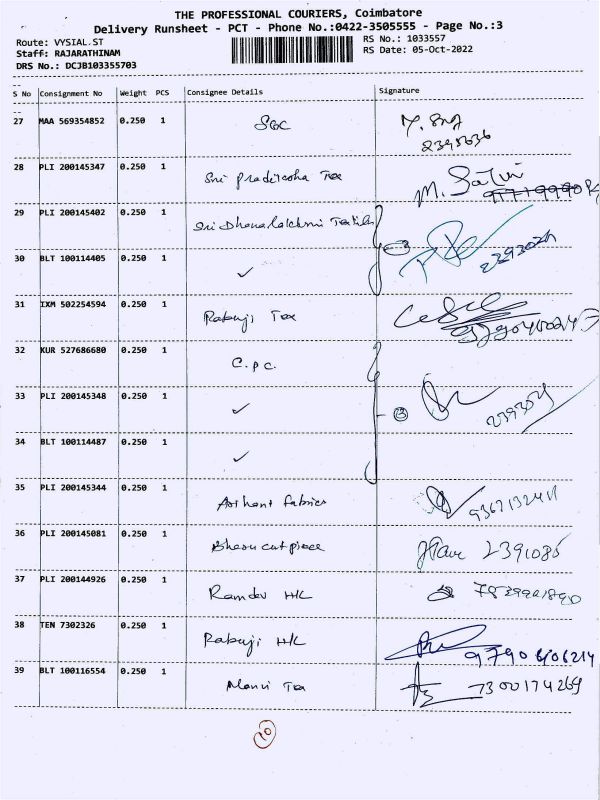 THE PROFESSIONAL COURIERS, Coimbatore
Delivery Runsheet - PCT - Phone No.:0422-3505555 - Page No.:3
Route: VYSIAL.ST RS No.: 1033557
Staff: RAJARATHINAM RS Date: 05-Oct-2022
DRS No.: DCJB103355703
S No Consignment No Weight PCS Consignee Details Signature
27 MAA 569354852 0.250 1
2395636
28 PLI 200145347 0.250 1 Sri Tex
M.
29 PLI 200145402 0.250 1 Sri Dhanalakshmi Textiles
30 BLT 100114405 0.250 1 ✓
31 IXM 502254594 0.250 1 Rabuji Tex
32 KUR 527686680 0.250 1 C.P.C.
33 PLI 200145348 0.250 1 ✓
34 BLT 100114487 0.250 1 ✓
35 PLI 200145344 0.250 1 Arihant Fabrics
36 PLI 200145081 0.250 1 cut piece 2391085
37 PLI 200144926 0.250 1 Ramdev H/C
38 TEN 7302326 0.250 1 Rabuji H/C
9790606214
39 BLT 100116554 0.250 1 Tex 7300174269